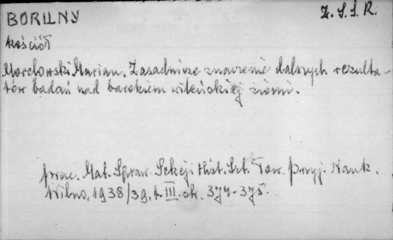 BORUNY Z.S.S.R.
kościół
Morelowski Marian. Zasadnicze znaczenie dalszych rezulta-
tów badań nad barokiem wileńskiej ziemi.
Prac. Mat. Spraw. Sekcji Hist. Szt. Tow. Przyj. Nauk.
Wilno, 1938/39, t. III. str. 374-375.